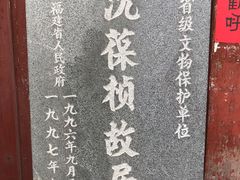 省级文物保护单位
沈葆桢故居
福建省人民政府
一九九六年九月
一九九七年